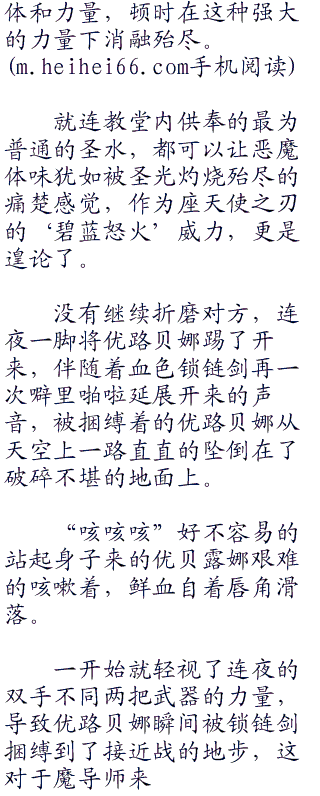 体和力量，顿时在这种强大
的力量下消融殆尽。
(m.heihei66.com手机阅读)
就连教堂内供奉的最为
普通的圣水，都可以让恶魔
体味犹如被圣光灼烧殆尽的
痛楚感觉，作为座天使之刃
的‘碧蓝怒火’威力，更是
遑论了。
没有继续折磨对方，连
夜一脚将优路贝娜踢了开
来，伴随着血色锁链剑再一
次噼里啪啦延展开来的声
音，被捆缚着的优路贝娜从
天空上一路直直的坠倒在了
破碎不堪的地面上。
“咳咳咳”好不容易的
站起身子来的优贝露娜艰难
的咳嗽着，鲜血自着唇角滑
落。
一开始就轻视了连夜的
双手不同两把武器的力量，
导致优路贝娜瞬间被锁链剑
捆缚到了接近战的地步，这
对于魔导师来